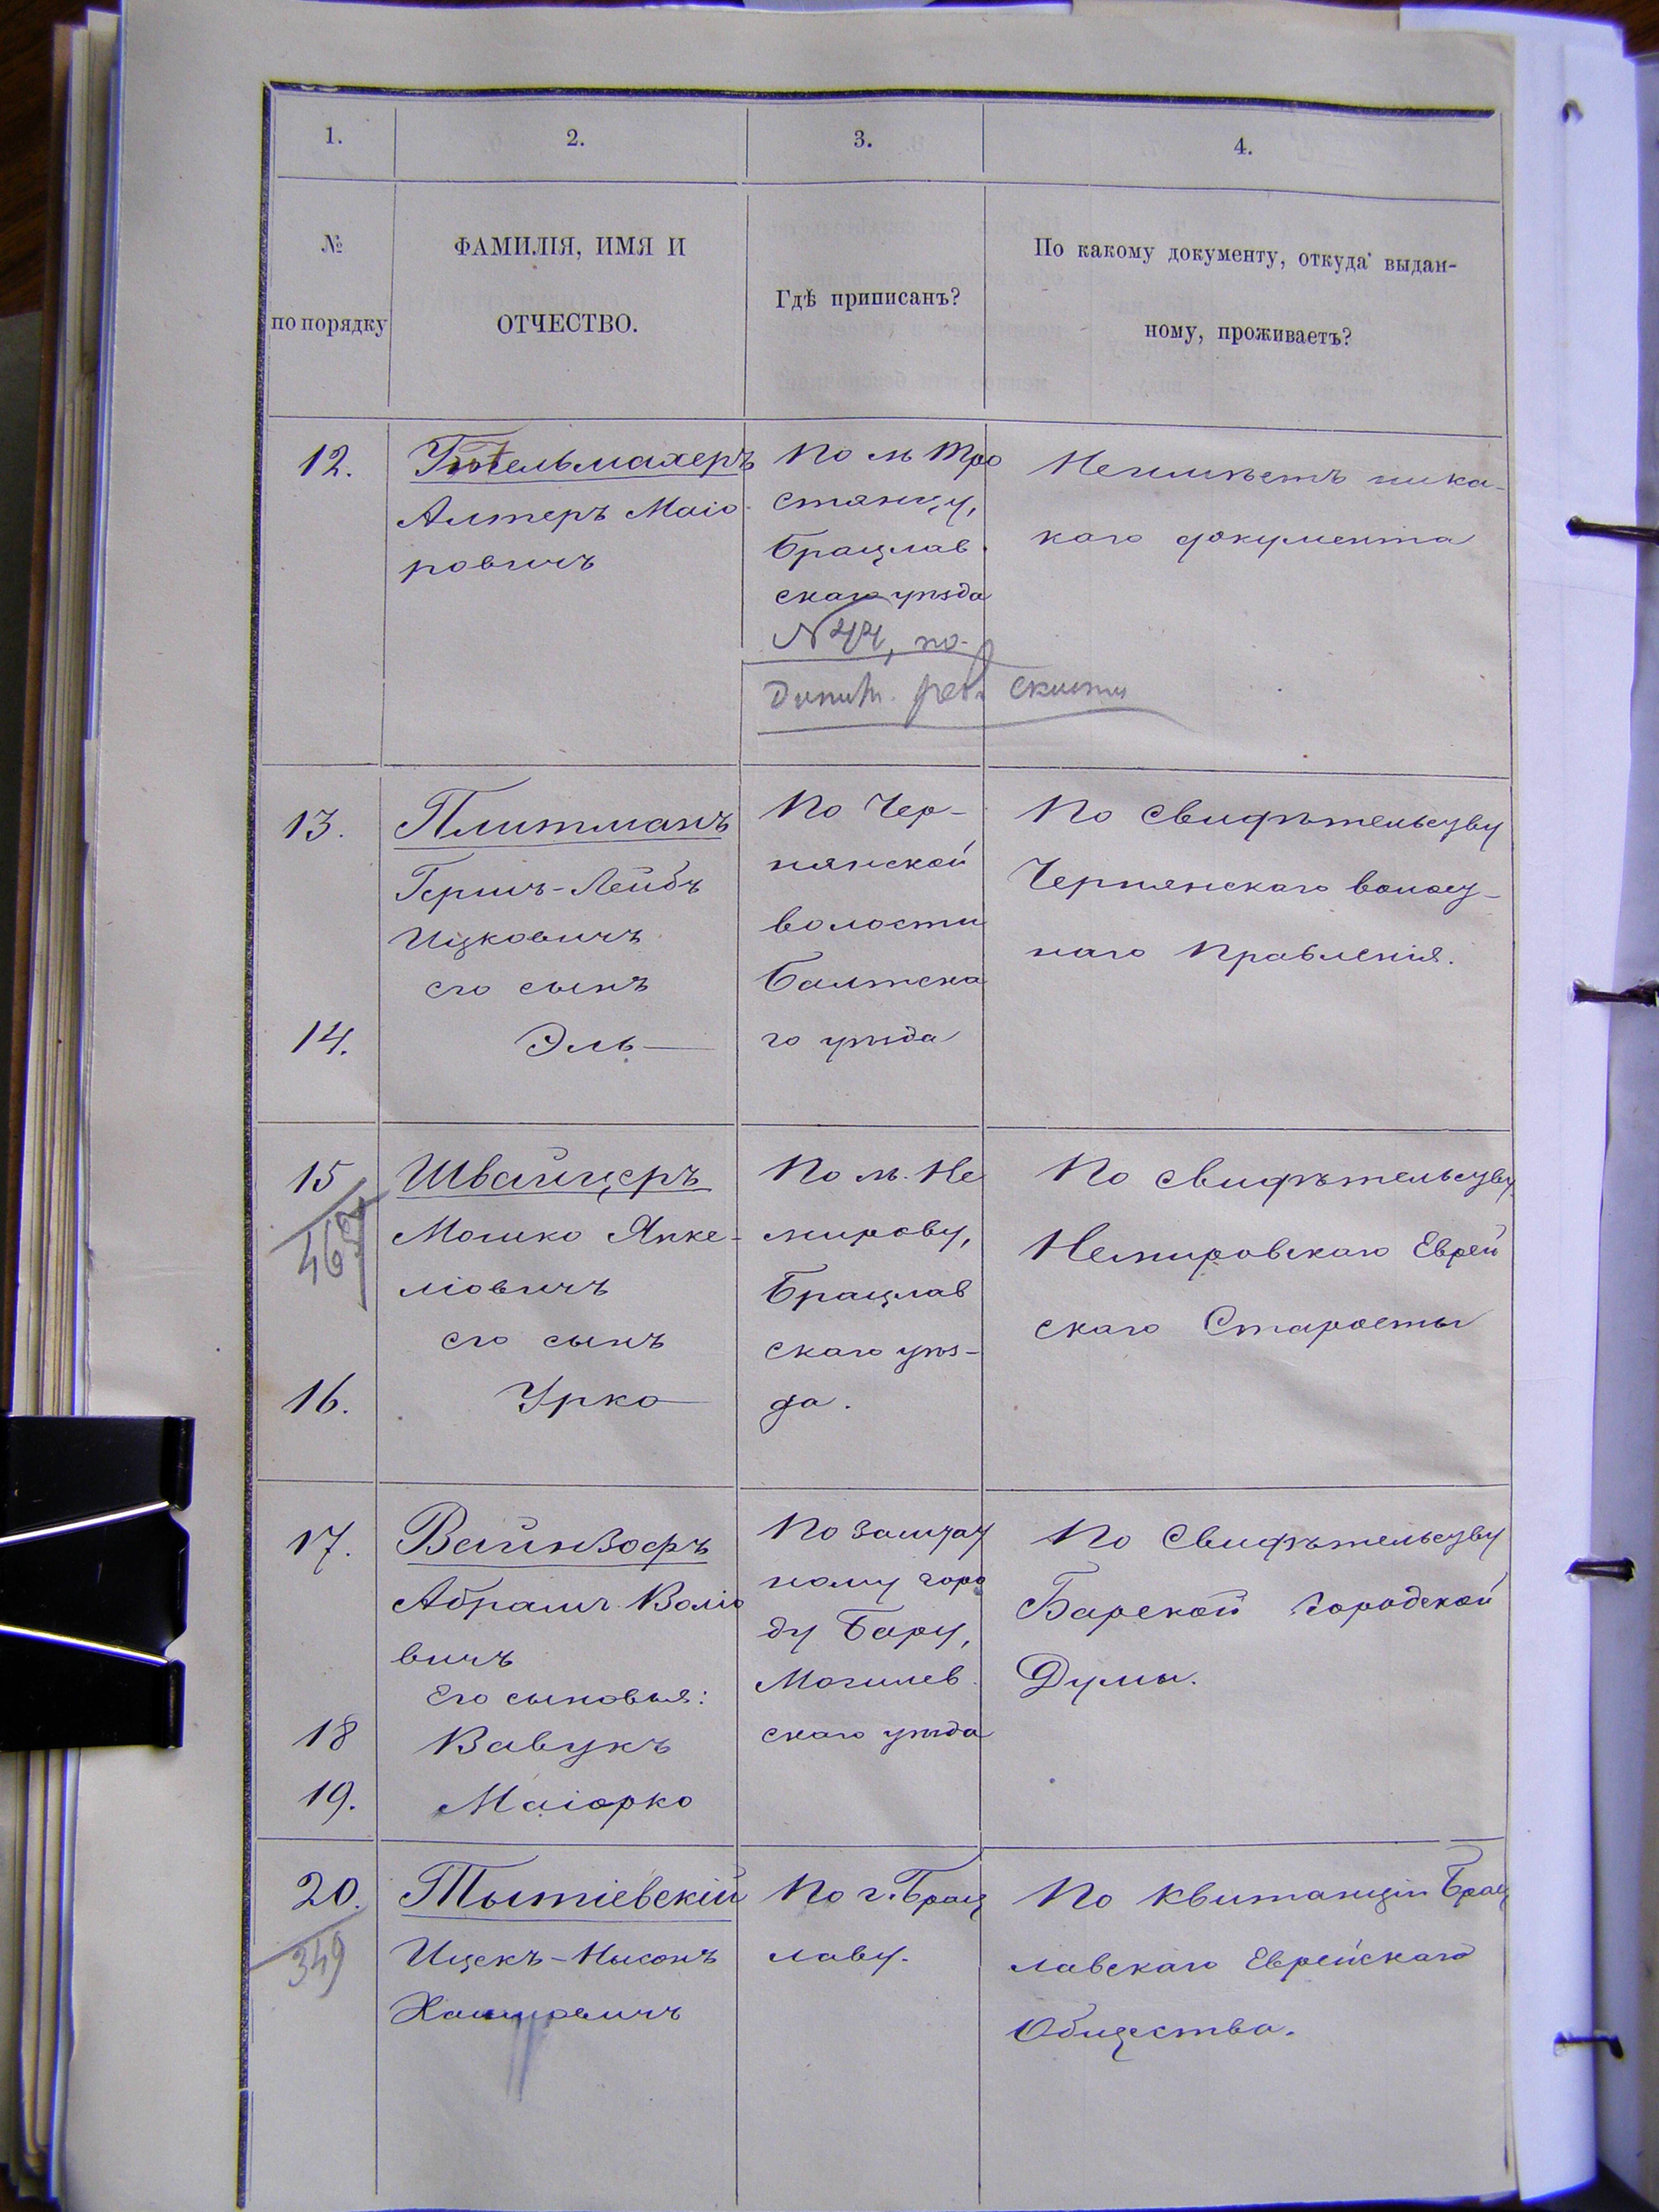 1.
2.
3.
4.
№
по порядку
ФАМИЛІЯ, ИМЯ И
ОТЧЕСТВО.
Гдѣ приписанъ?
По какому документу, откуда выдан-
ному, проживаетъ?
12.
Гительмахеръ
Алтеръ Маіо
ровичъ
По м Тро
стянцу,
Брацлав
скаго уѣзда
№ 44, по
Неимѣетъ ника-
кого документа
13.
Плитманъ
Гершъ-Лейбъ
Ицковичъ
его сынъ
14.
Эль
По Чер-
нянской
волости
Балтска
го уѣзда
По свидѣтельству
Чернянскаго волост-
наго Правленія.
15
467
Швайцеръ
Мошко Янке-
ліовичъ
его сынъ
16.
Урко
По м. Не
мирову,
Брацлав
скаго уѣз-
да.
По свидѣтельству
Немировскаго Еврей
скаго Старосты
17.
Вайнзофъ
Абрамъ Воліо
вичъ
Его сыновья:
18
Вавукъ
19.
Маіорко
По заштат
ному горо
ду Бару,
Могилев
скаго уѣзда
По Свидѣтельству
Барской городской
Думы.
20.
349
Тытіевскій
Ицекъ-Нысонъ
Хаимовичъ
По г. Брац
лаву.
По квитанціи Брац
лавскаго Еврейскаго
Общества.